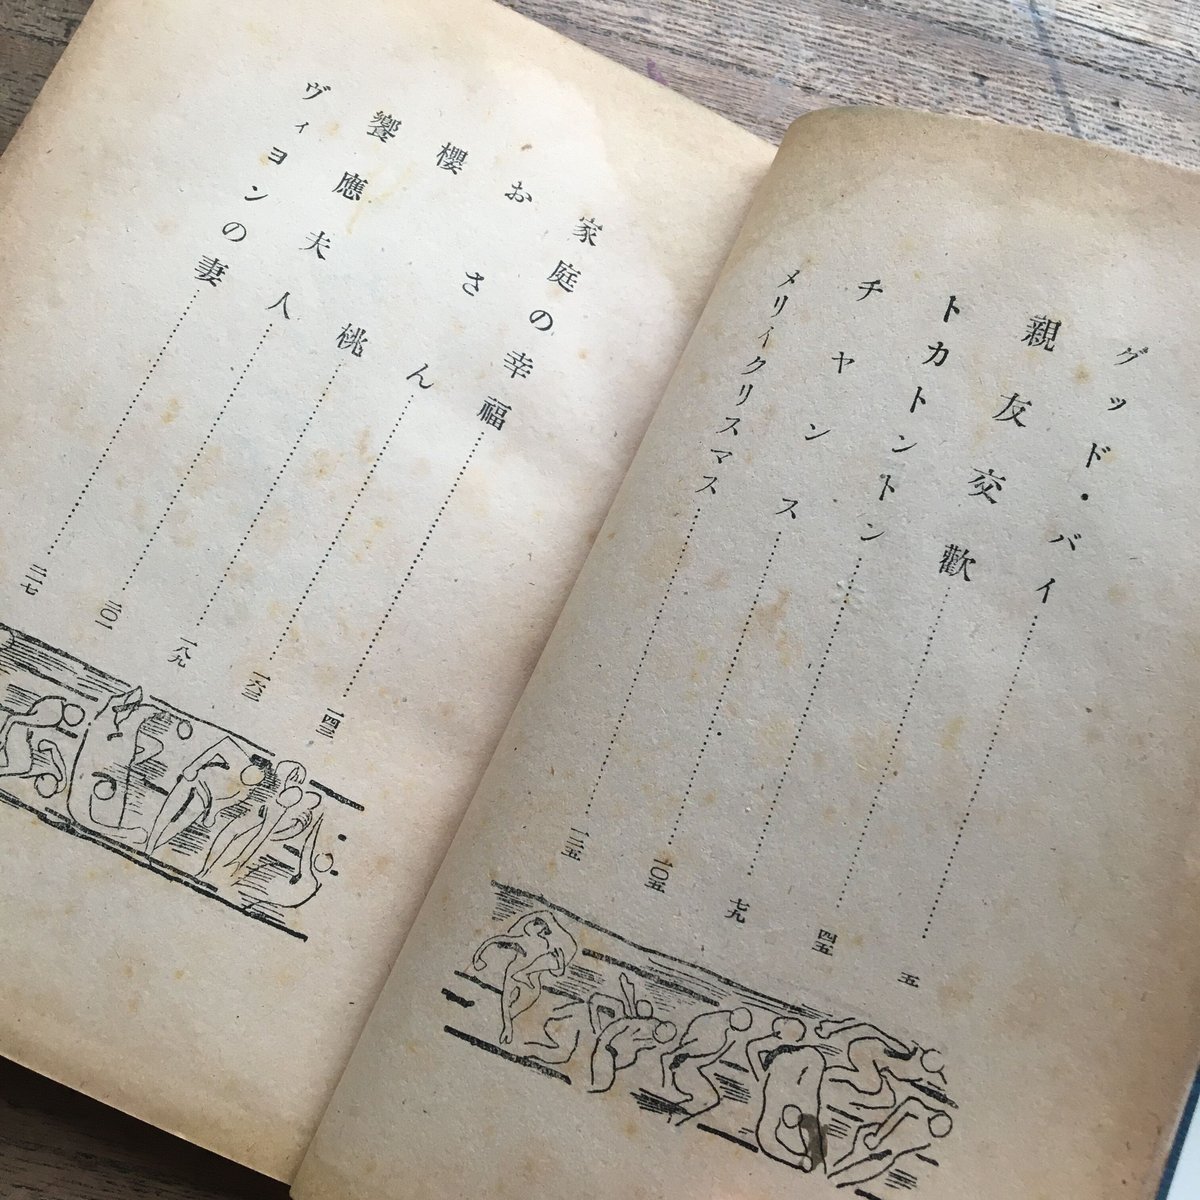 グッド・バイ……五
親友交歡……四五
トカトントン……七九
チヤンス……一〇五
メリイクリスマス……一二五
家庭の幸福……一四三
おさん……一六三
櫻桃……一八九
饗應夫人……二〇一
ヴィヨンの妻……二一七